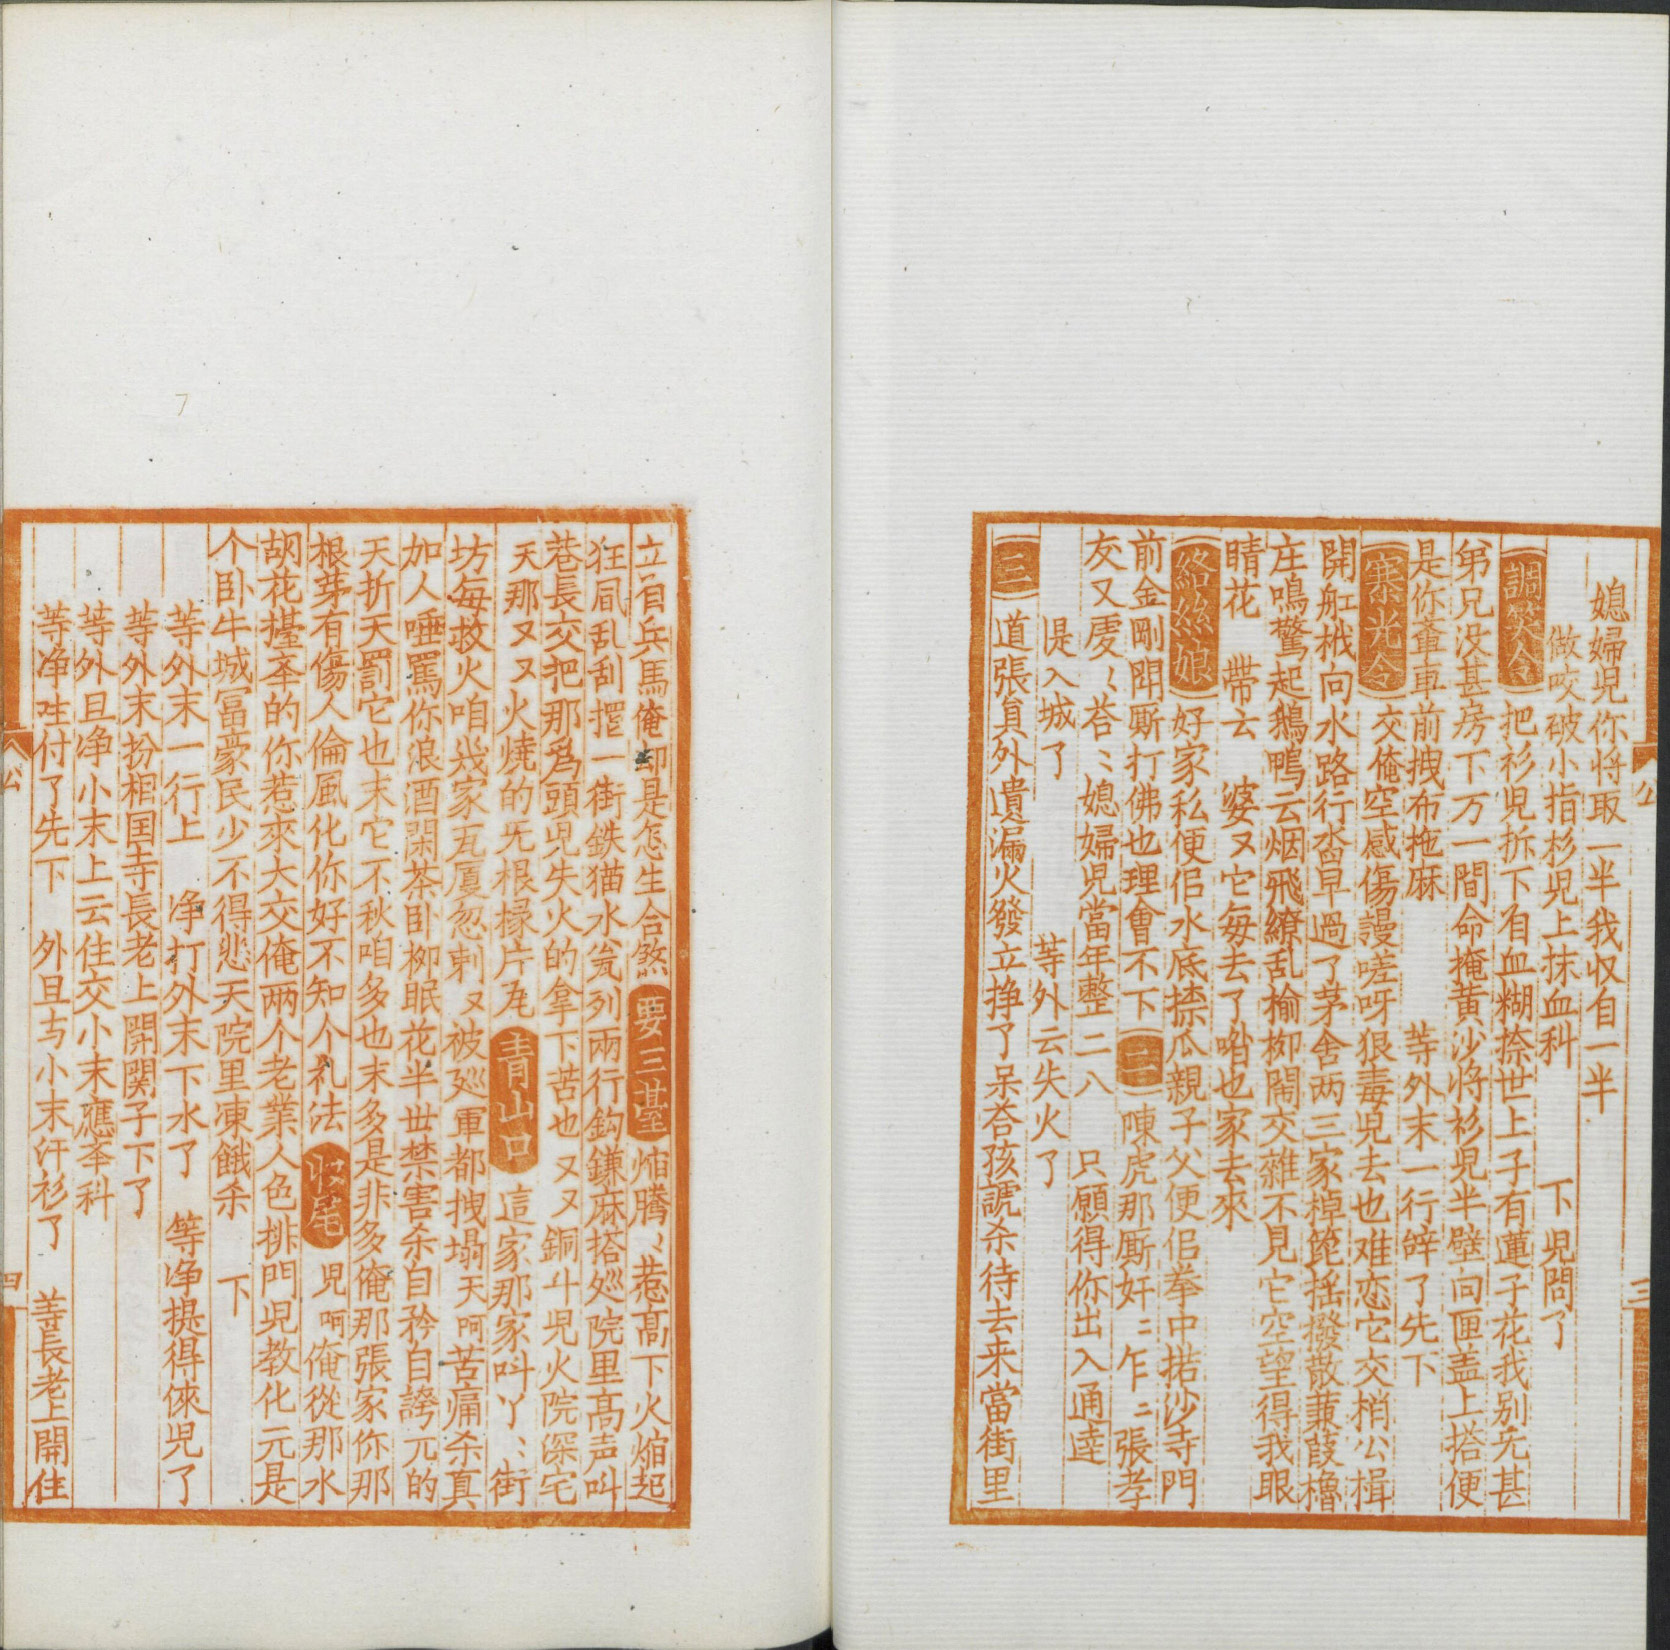 媳婦児你将取一半我収自一半
做咬破小指杉児上抹血科　下児問了
調笑令　把衫児拆下有血糊捺世上子有蓮子花我別无甚
弟兄没甚房下万一間命掩黄沙将衫児半壁向匣盖上搭便
是你輂車前拽布拖麻　䓁外末一行辝了先下
寨光令　交俺空感傷謾嗟呀狠毒児去也难恋它交梢公楫
開舡栰向水路行沓早過了茅舍两三家棹箆揺撥散蒹葭櫓
庄鳴驚起鵝鴨云烟飛繚乱榆栁閙交雑不見它空望得我眼
睛花　帶云　婆又它每去了咱也家去來
絡絲娘　好家私便侣水底捺瓜親子父便侣拳中搭沙寺門
前金剛閗厮打佛也理會不下　二　陳虎那厮奸〻乍〻張孝
友又虔〻荅〻媳婦児當年整二八　只願得你出入通逹
促入城了　䓁外云失火了
三　道張員外遺漏火發立挣了呆荅孩諕杀待去来當街里
立自兵馬俺却是怎生合煞　耍三䑓　焰騰〻惹髙下火焰起
狂凬乱刮擺一街鉄猫水瓮列兩行鈎鎌麻搭廵院里髙声叫
巷長交把那爲頭児失火的拿下苦也　又又銅斗児火院深宅
天那又又火燒的旡根椽片瓦　青山口　這家那家叫丫〻街
坊每救火咱幾家瓦厦忽剌又被廵軍都拽塌天呵苦痛杀真
加人唾罵你浪酒閑茶卧栁眠花半世禁害杀自矜自誇兀的
天折天罰它也末它不秋咱多也末多是非多俺那張家你那
根芽有傷人倫風化你好不知个礼法　收尾　児呵俺從那水
胡花擡夲的你惹來大交俺兩个老業人色排門児教化元是
个卧牛城冨豪民少不得悲天院里凍餓杀　下
䓁外末一行上　净打外末下水了　䓁净提得倈児了
䓁外末扮相国寺長老上開関子下了
䓁外旦净小末上云住交小末應夲科
䓁净甡付了先下　外旦与小末汗衫了　䓁長老上開住
公
三
公
四